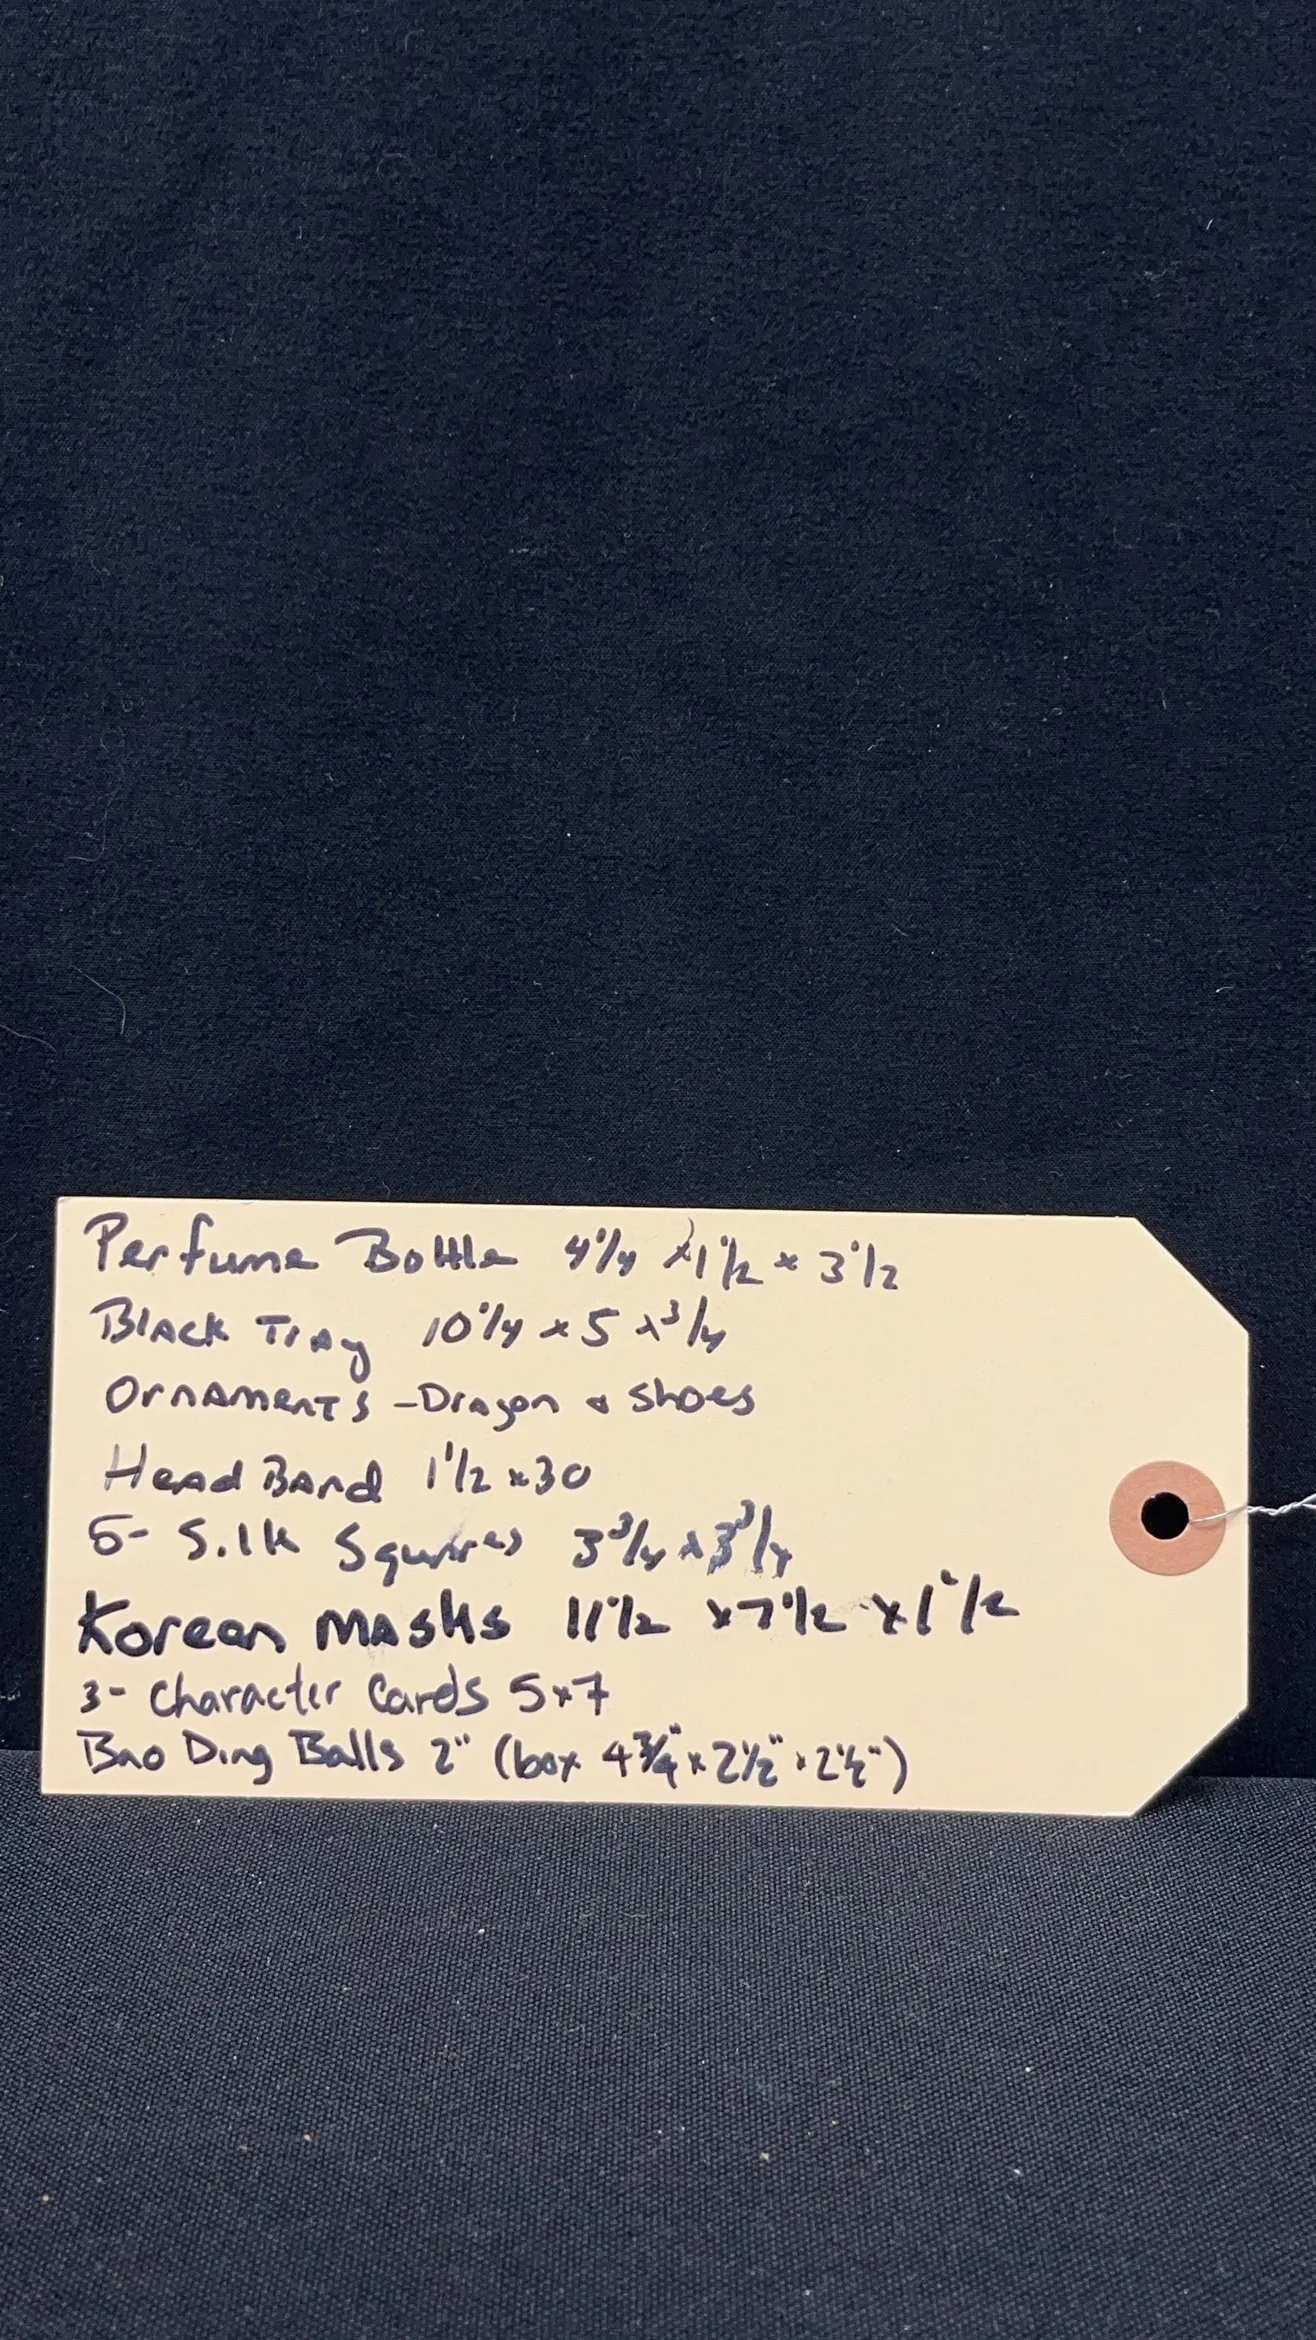 Perfume Bottle 4 1/4 x 1 1/2 x 3 1/2
Black Tray 10 1/4 x 5 x 3/4
Ornaments - Dragon & Shoes
Head Band 1 1/2 x 30
5- Silk Squares 3 3/4 x 3 3/4
Korean Masks 11 1/2 x 7 1/2 x 1 1/2
3- Character Cards 5x7
Bao Ding Balls 2" (box 4 3/4" x 2 1/2" x 2 1/2")